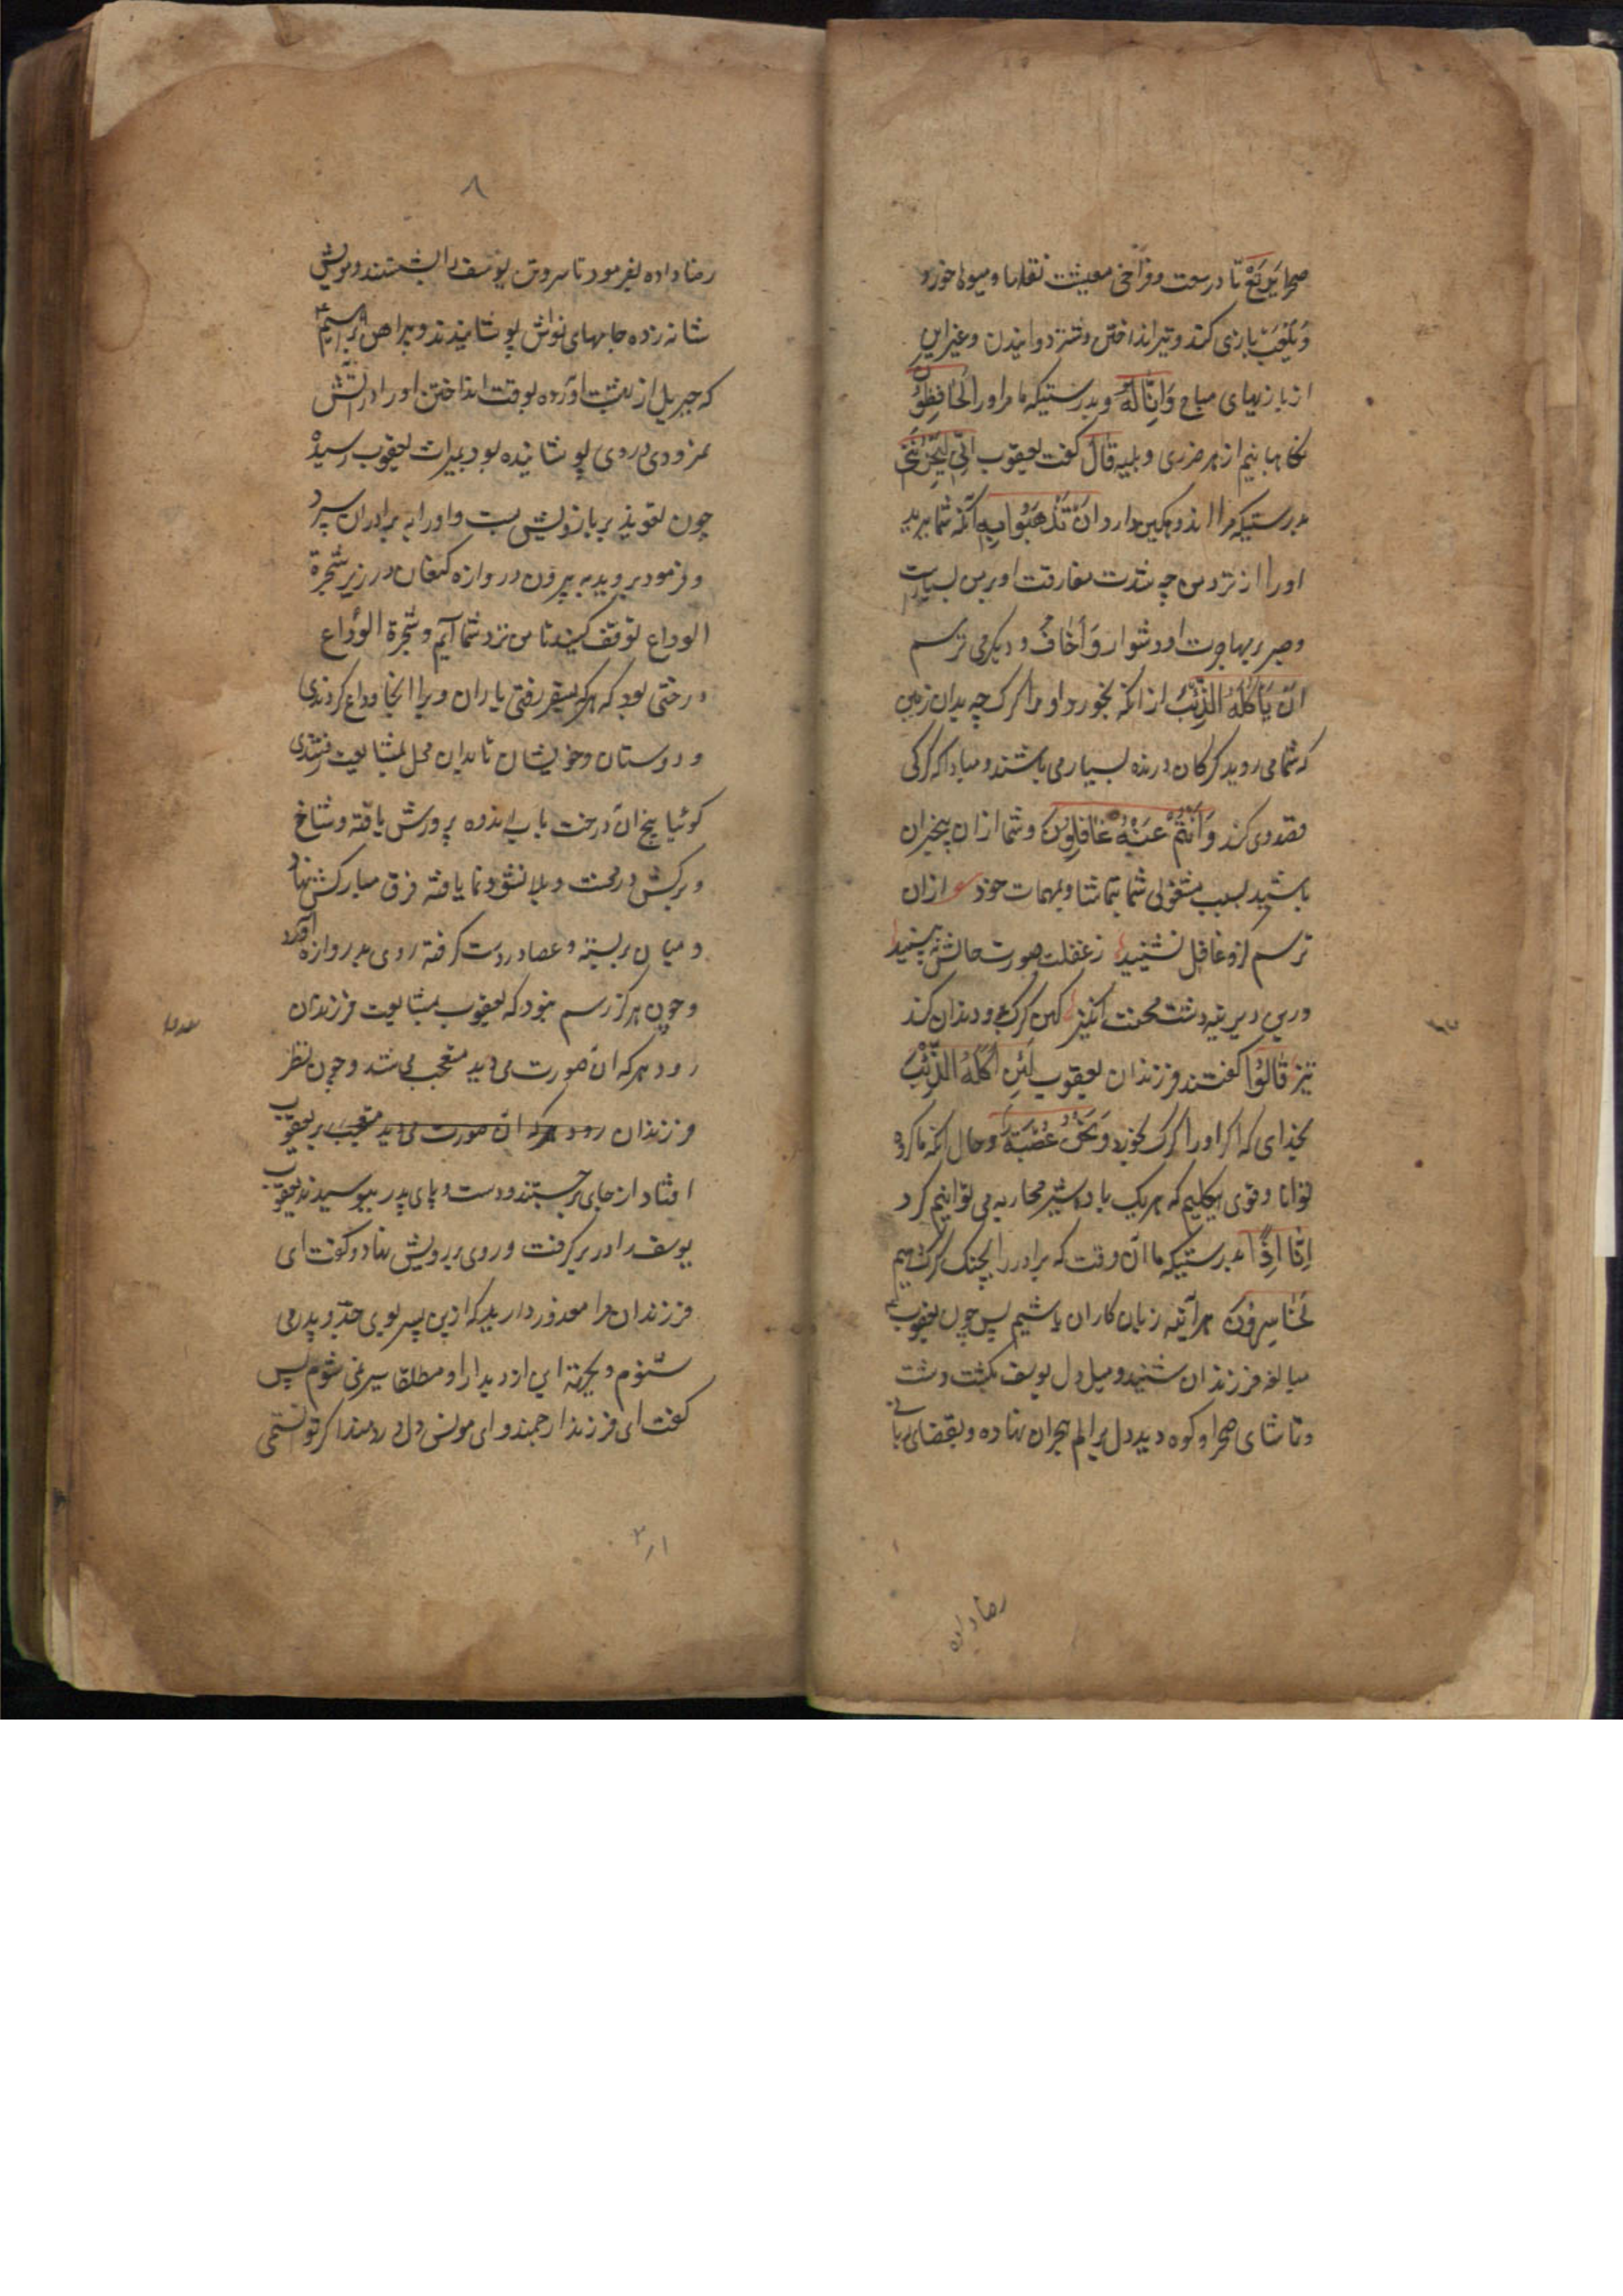 صحرا یَرتَعْ تا در سعت و فراخی معیشت نقلها و میوها خورد
وَیَلْعَبْ بازی کند و تیر انداختن و شتر دوانیدن و غیر این
از بازیهای مباح وَاِنَّا لَهُ و بدرستیکه ما مر او را لَحَافِظُوْنَ
نکاهبانیم از هر ضرری و بلیه قَالَ کفت یعقوب اِنِّی لَیَحْزُنُنِی
بدرستیکه مرا اندوهکین دارد اَنْ تَذْهَبُوْا بِهِ آنکه شما ببرید
او را از نزد من چه شدت مفارقت او بر من بسیارست
و صبر بر مهاجرت او دشوار وَ اَخَافُ و دیکر می ترسم
اَنْ یَاْکُلَهُ الذِّئْبُ از انکه بخورد او را کرک چه بدان زمین
که شما می روید کرکان درنده بسیار می باشند و مبادا که کرکی
قصد وی کند وَ اَنْتُمْ عَنْهُ غَافِلُوْنَ و شما از ان بیخبران
باشید بسبب مشغولی شما بتماشا و بمهمات خود ازان
ترسم کزو غافل نشینید ز غفلت صورت حالش نه بینید
درین دیرینه دشت محنت انکیز کهن کرکی برو دندان کند
تیز قَالُوْا کفتند فرزندان یعقوب لَئِنْ اَکَلَهُ الذِّئْبُ
بخدای که اکر او را کرک بخورد وَ نَحْنُ عُصْبَةٌ و حال انکه ما کروه
توانا و قوی هیکلیم که هر یک با ده شیر محاربه می توانیم کرد
اِنَّا اِذًا بدرستیکه ما ان وقت که برادر را بچنک کرک دهیم
لَخَاسِرُوْنَ هر آینه زیان کاران باشیم پس چون یعقوب
مبالغه فرزندان شنید و میل دل یوسف بکشت دشت
و تماشای صحرا و کوه دید دل بر الم هجران نهاده و بقضای ربانی
رضا داده
۸
رضا داده بفرمود تا سر و تن یوسف را بشستند و مویش
شانه زده جامهای نواش پوشانیدند و پیراهن ابراهیم
که جبریل از بهشت آورده بوقت انداختن او را در اتش
نمرودی در وی پوشانیده بود بمیراث یعقوب رسیده
چون تعویذ بر بازویش بست و او را به برادران سپرد
و فرمود بروید به بیرون دروازه کنعان در زیر شجرة
الوداع توقف کنید تا من نزد شما آیم و شجرة الوداع
درختی بود که هر که بسفر رفتی یاران ویرا انجا وداع کردندی
و دوستان و خویشان تا بدان محل بمشایعت رفتندی
کوئیا بیخ ان درخت باب اندوه پرورش یافته و شاخ
و برکش در محنت و بلا نشو و نما یافته فرق مبارکش نهاد
و میان بر بسته و عصا در دست کرفته روی بدروازه آورد
و چون هرکز رسم نبود که یعقوب بمشایعت فرزندان
رود هر که ان صورت می دید متعجب می شد و چون نظر
فرزندان رود هر که ان صورت می دید متعجب بر یعقوب
افتاد از جای برجستند و دست و پای پدر ببوسیدند یعقوب
یوسف را در بر کرفت و روی بر رویش نهاد و کفت ای
فرزندان مرا معذور دارید که ازین پسر بوی جدّ و پدر می
شنوم و بجهة این از دیدار او مطلقا سیر نمی شوم پس
کفت ای فرزند ارجمند و ای مونس دل دردمند اکر توانستمی